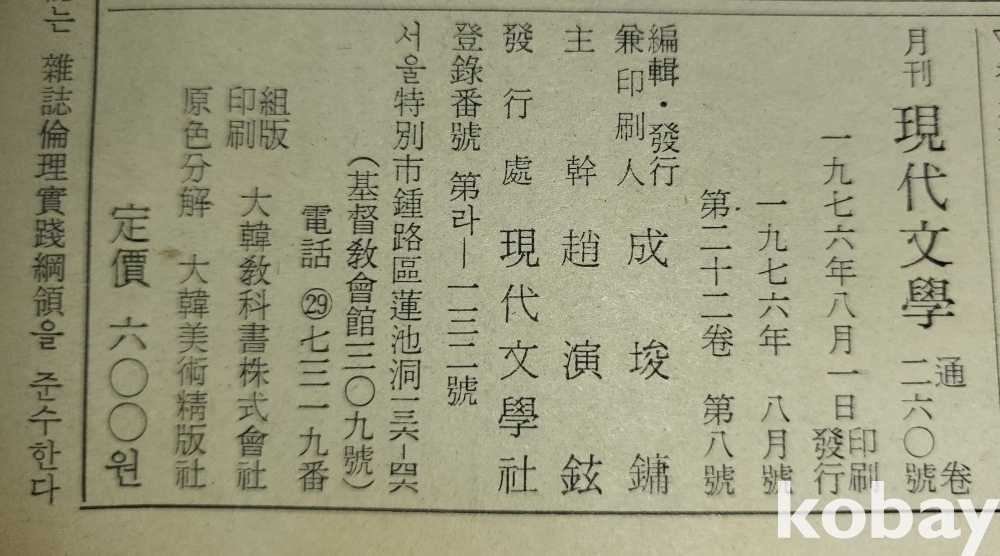 月刊 現代文學 通卷 二六〇號
一九七六年八月一日 印刷 發行
一九七六年 八月號
第二十二卷 第八號
編輯・發行
兼印刷人 成埈鏞
主幹 趙演鉉
發行處 現代文學社
登錄番號 第라—
서울特別市鍾路區蓮池洞一三六-四六
(基督敎會館三〇九號)
電話 ㉙七三一九番
組版 印刷 大韓敎科書株式會社
原色分解 大韓美術精版社
定價 六〇〇원
는 雜誌倫理實踐綱領을 준수한다
kobay